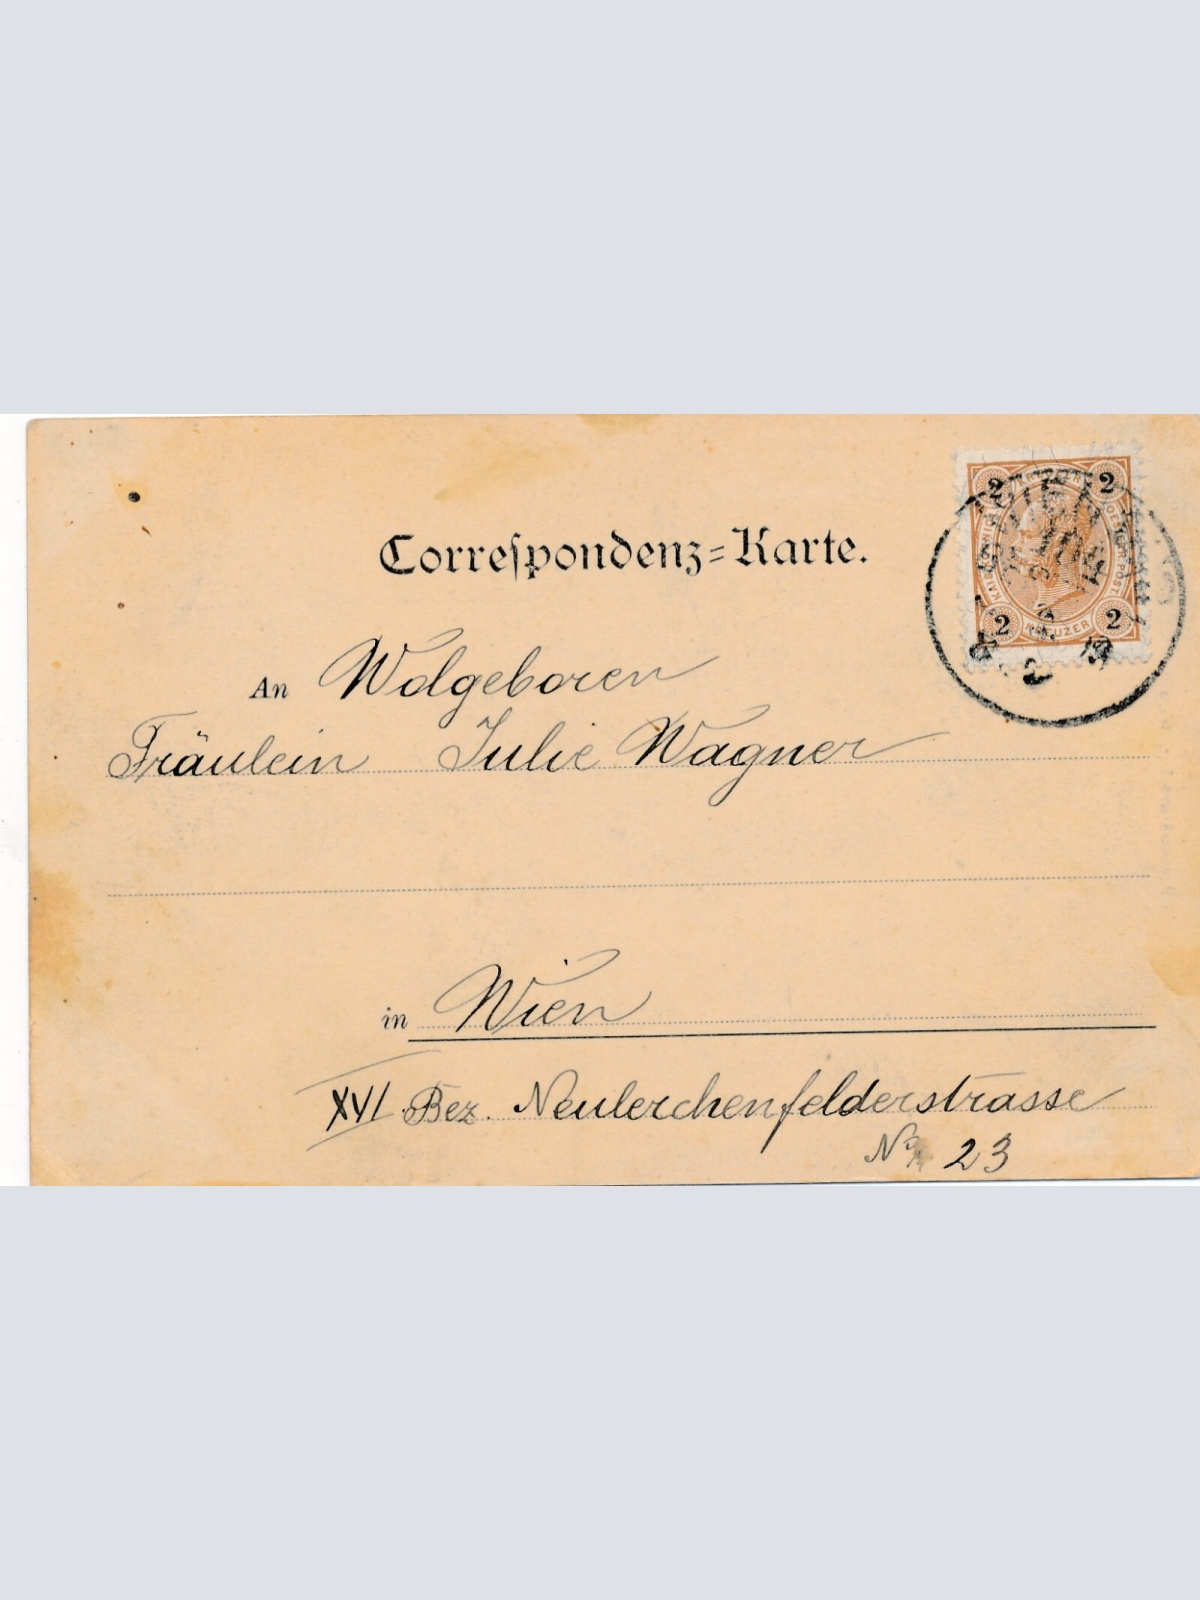 Correſpondenz=Karte.
2 2
KREUZER
2 2
An Wolgeboren
Fräulein Julie Wagner
in Wien
XVI. Bez. Neulerchenfelderstrasse
No 23